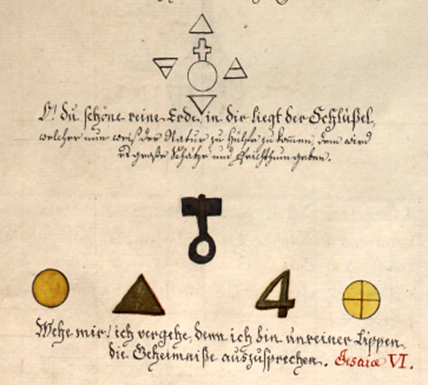 O! du schöne reine Erde, in dir liegt der Schlüßel,
welcher nun weiß der Natur zu Hülfe zu kommen, dem wird
es große Schätze und Reichthum geben.
4
Wehe mir! ich vergehe, denn ich bin unreiner Lippen,
die Geheimniße auszusprechen. Jesaiæ VI.